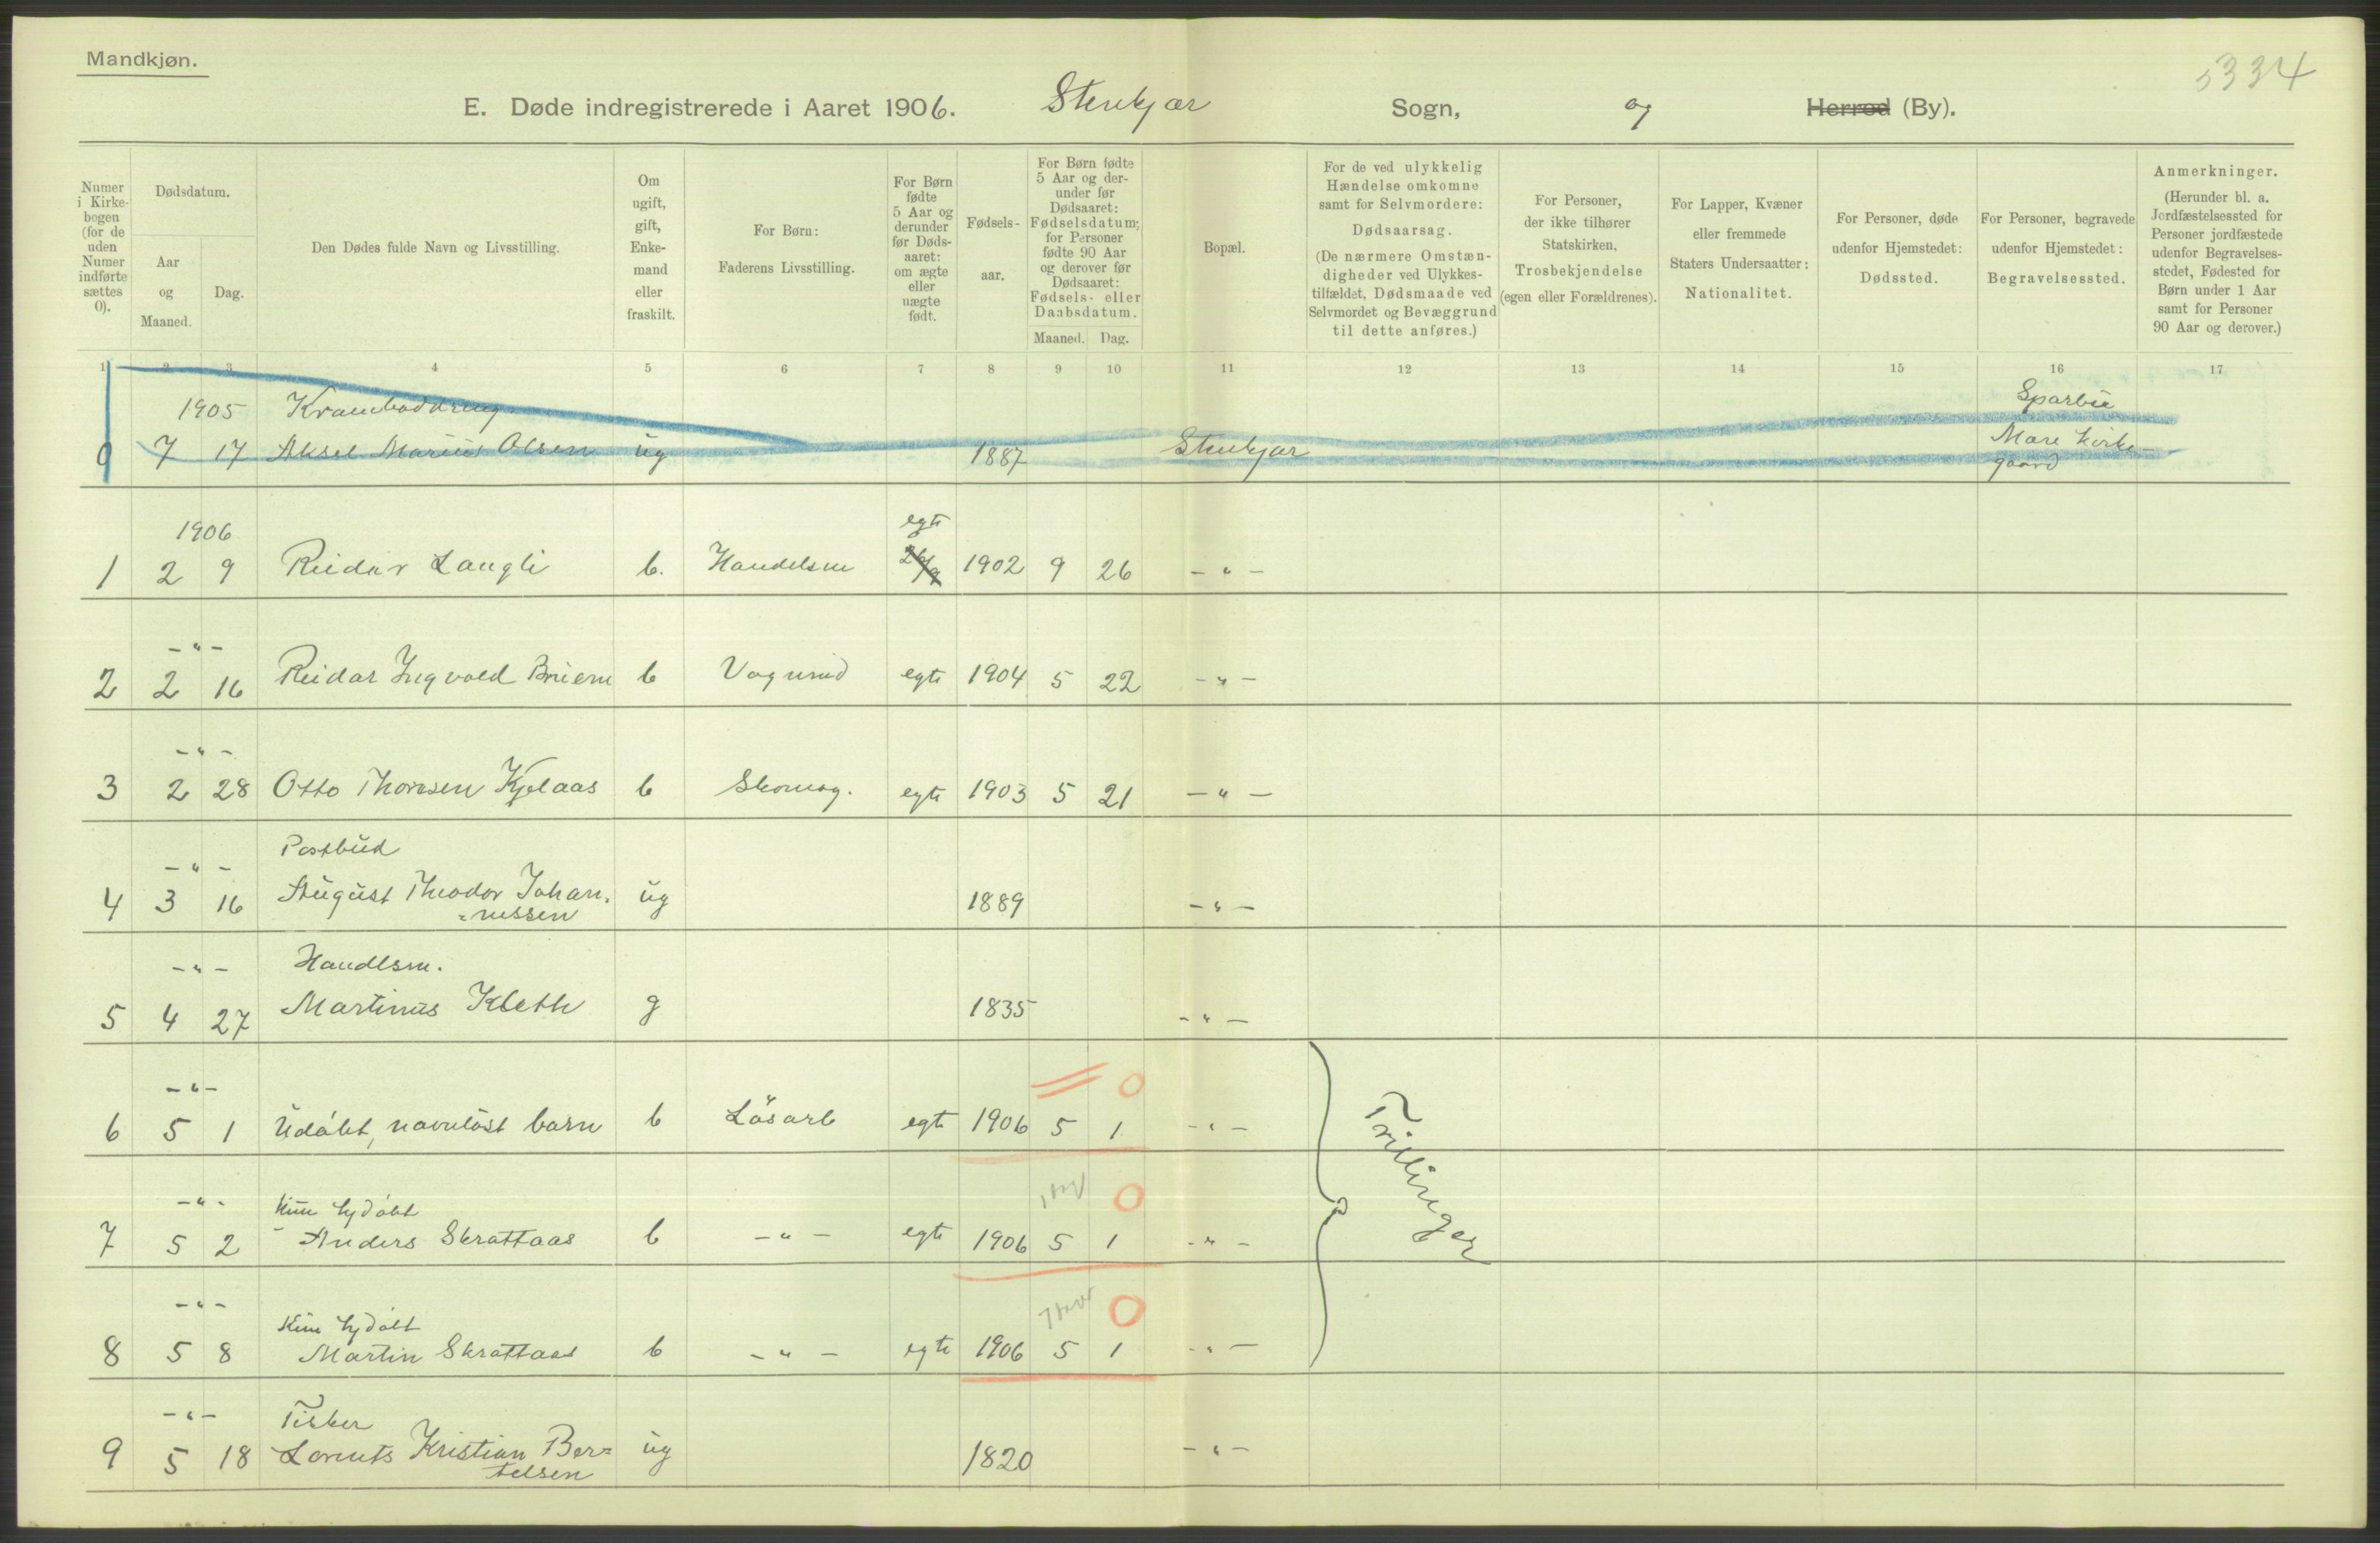 Mandkjøn.
5334
E. Døde indregistrerede i Aaret 1906. Stenkjær Sogn, og Herred (By).
Numer i Kirke-bogen (for de uden Numer indførte sættes 0).
Dødsdatum.
Aar og Maaned.
Dag.
Den Dødes fulde Navn og Livsstilling.
Om ugift, gift, Enke-mand eller fraskilt.
For Børn: Faderens Livsstilling.
For Børn fødte 5 Aar og derunder før Døds-aaret: om ægte eller uægte født.
Fødsels-aar.
For Børn fødte 5 Aar og der-under før Dødsaaret: Fødselsdatum; for Personer fødte 90 Aar og derover før Dødsaaret: Fødsels- eller Daabsdatum.
Maaned. Dag.
Bopæl.
For de ved ulykkelig Hændelse omkomne samt for Selvmordere: Dødsaarsag. (De nærmere Omstæn-digheder ved Ulykkes-tilfældet, Dødsmaade ved Selvmordet og Bevæggrund til dette anføres.)
For Personer, der ikke tilhører Statskirken, Trosbekjendelse (egen eller Forældrenes).
For Lapper, Kvæner eller fremmede Staters Undersaatter: Nationalitet.
For Personer, døde udenfor Hjemstedet: Dødssted.
For Personer, begravede udenfor Hjemstedet: Begravelsessted.
Anmerkninger. (Herunder bl. a. Jordfæstelsessted for Personer jordfæstede udenfor Begravelses-stedet, Fødested for Børn under 1 Aar samt for Personer 90 Aar og derover.)
1 2 3 4 5 6 7 8 9 10 11 12 13 14 15 16 17
1905 Kramboddreng Sparbu
0 7 17 Aksel Marius Olsen ug 1887 Stenkjær Mære Kirke-
gaard
1906 egte
1 2 9 Reidar Langli b. Handelsm 26/9 1902 9 26 - " -
- " -
2 2 16 Reidar Ingvald Bruem b Vognmd egte 1904 5 22 - " -
- " -
3 2 28 Otto Thoresen Kjelaas b Skomag. egte 1903 5 21 - " -
- " - Postbud
4 3 16 August Theodor Johan- ug 1889 - " -
=nessen
- " - Handlsm.
5 4 27 Martinus Kleth g 1835 - " -
- " - 0
6 5 1 Udøbt, navnløst barn b Løsarb egte 1906 5 1 - " -
Trillinger
- " - Hjm hjdøbt 0
7 5 2 Anders Skrattaas b - " - egte 1906 5 1 - " -
- " - Hjm hjdøbt 0
8 5 8 Martin Skrattaas b - " - egte 1906 5 1 - " -
- " - Fisker
9 5 18 Lornts Kristian Ber= ug 1820 - " -
telsen